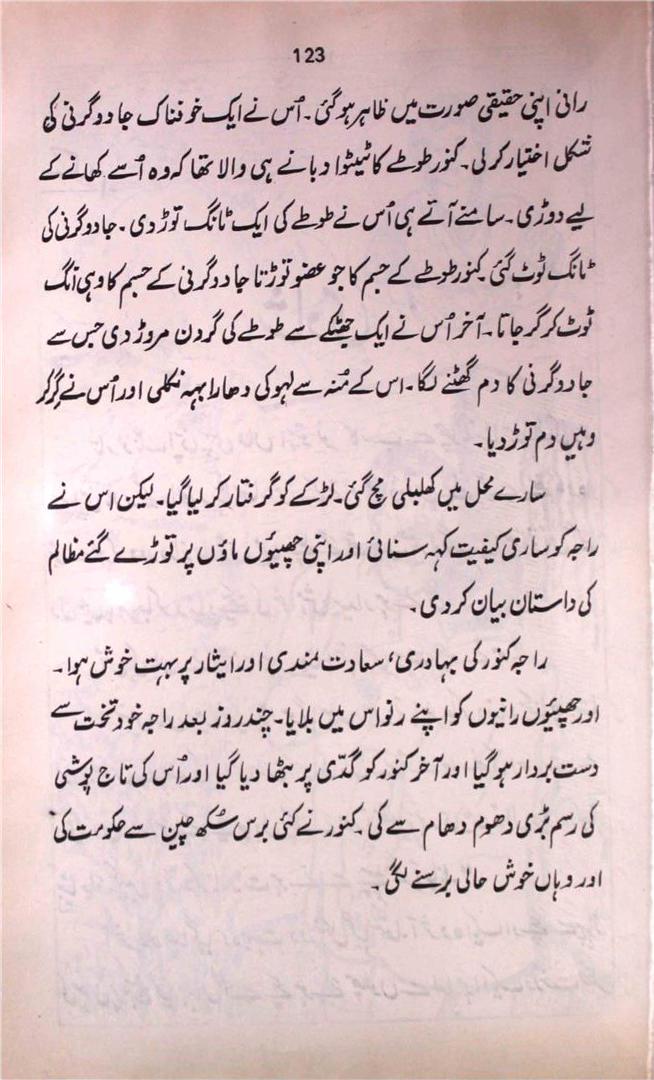 123
رانی اپنی حقیقی صورت میں ظاہر ہوگئی۔ اُس نے ایک خوفناک جادوگرنی کی
شکل اختیار کرلی۔ کنور طوطے کا ٹینٹوا دبانے ہی والا تھا کہ وہ اُسے کھانے کے
لیے دوڑی۔ سامنے آتے ہی اُس نے طوطے کی ایک ٹانگ توڑ دی۔ جادوگرنی کی
ٹانگ ٹوٹ گئی۔ کنور طوطے کے جسم کا جو عضو توڑتا جادوگرنی کے جسم کا وہی انگ
ٹوٹ کر گر جاتا۔ آخر اُس نے ایک جھٹکے سے طوطے کی گردن مروڑ دی جس سے
جادوگرنی کا دم گھٹنے لگا۔ اس کے مُنہ سے لہو کی دھارا بہہ نکلی اور اُس نے گر کر
وہیں دم توڑ دیا۔
سارے محل میں کھلبلی مچ گئی۔ لڑکے کو گرفتار کر لیا گیا۔ لیکن اس نے
راجہ کو ساری کیفیت کہہ سنائی اور اپنی چھیئوں ماؤں پر توڑے گئے مظالم
کی داستان بیان کر دی۔
راجہ کنور کی بہادری، سعادت مندی اور ایثار پر بہت خوش ہوا۔
اور چھیئوں رانیوں کو اپنے رنواس میں بلایا۔ چند روز بعد راجہ خود تخت سے
دست بردار ہو گیا اور آخر کنور کو گدّی پر بٹھا دیا گیا اور اُس کی تاج پوشی
کی رسم بڑی دھوم دھام سے کی۔ کنور نے کئی برس سُکھ چین سے حکومت کی
اور وہاں خوش حالی برسنے لگی۔